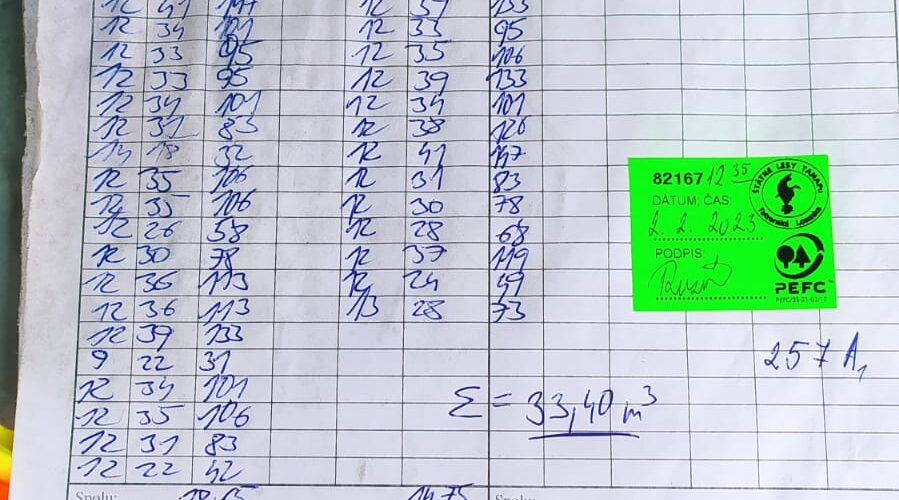 12 41 147 12 39 133
12 34 101 12 33 95
12 33 95 12 35 106
12 33 95 12 39 133
12 34 101 12 34 101
12 31 83 12 38 126
14 18 32 12 41 147
12 35 106 12 31 83
12 35 106 12 30 78
12 26 58 12 28 68
12 30 78 12 37 119
12 36 113 12 24 49
12 36 113 13 28 73
12 39 133
9 22 31
12 34 101
12 35 106
12 31 83
12 22 42
Σ = 33,40 m³
257 A1
82167 12 35
DÁTUM, ČAS:
2. 2. 2023
PODPIS:
ŠTÁTNE LESY TANAPu
Tatranská Lomnica
PEFC™
Spolu: 14,75 Spolu: